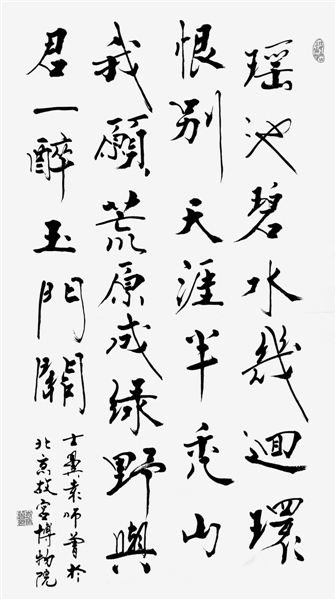 瑶池碧水幾迴環
恨别天涯半秃山
我願荒原成绿野與
君一醉玉門關
墨袁師曾於
北京故宫博物院